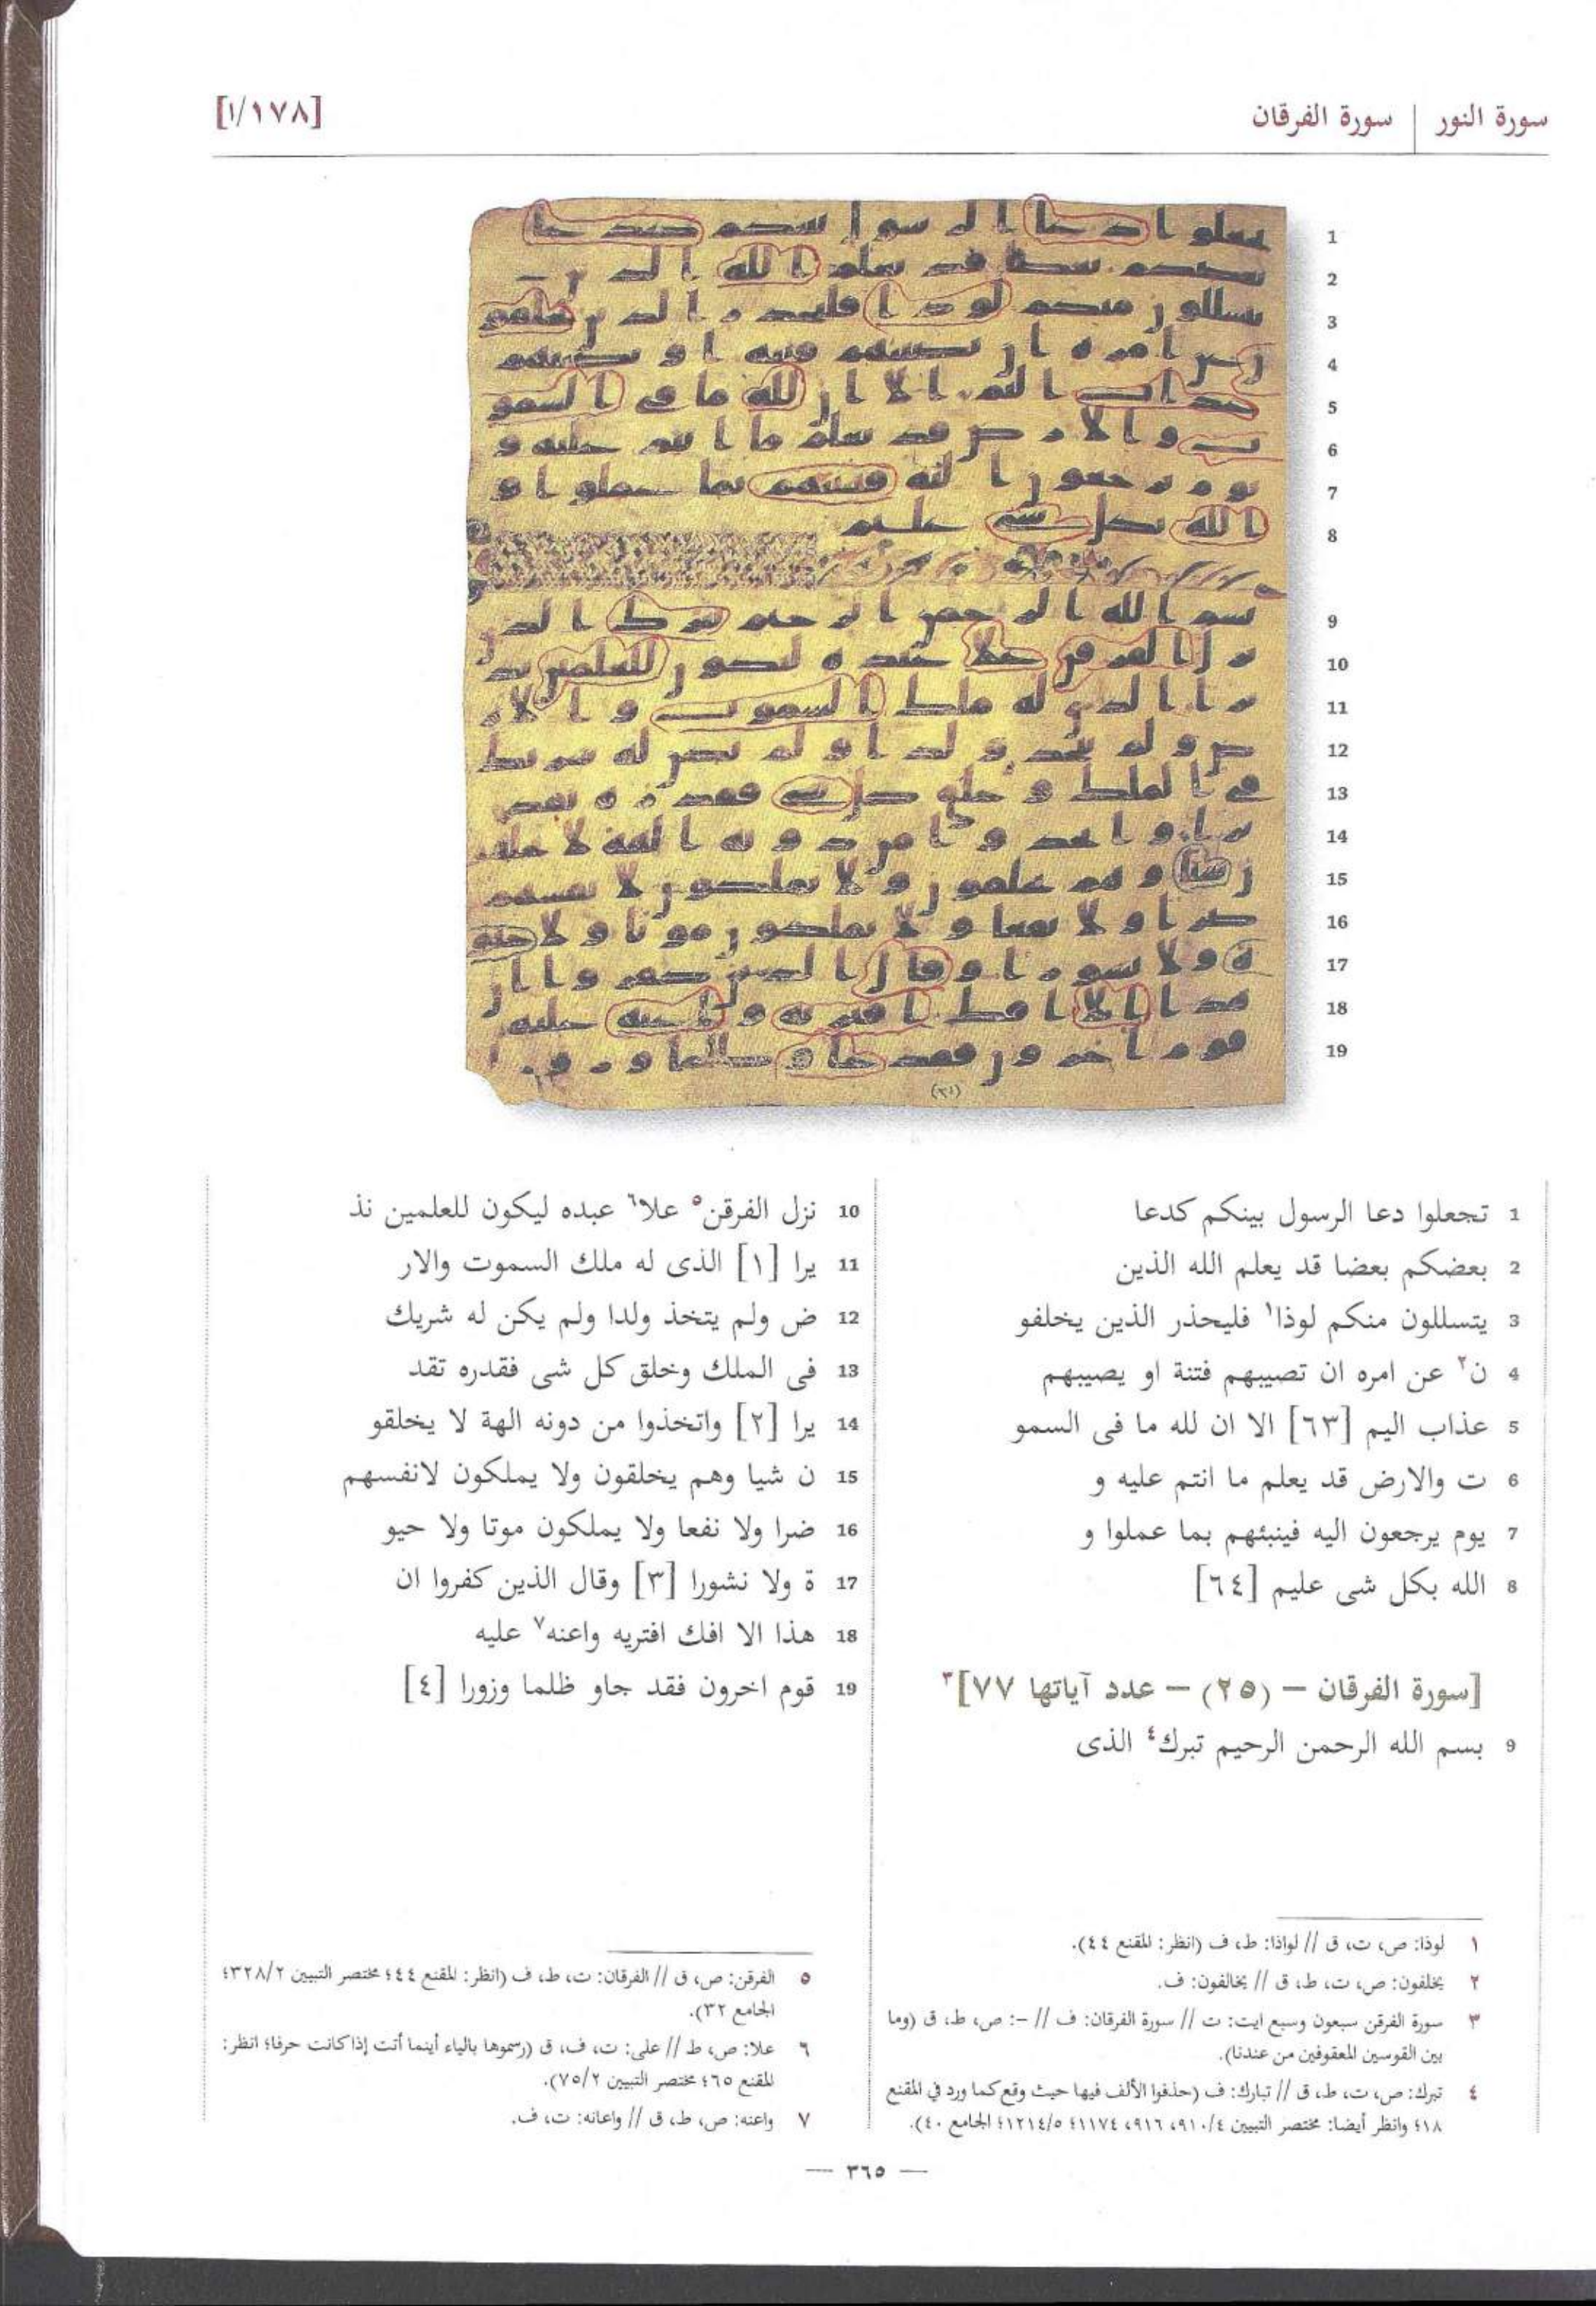 سورة النور | سورة الفرقان
[١/١٧٨]
1 تجعلوا دعا الرسول بينكم كدعا
2 بعضكم بعضا قد يعلم الله الذين
3 يتسللون منكم لوذا١ فليحذر الذين يخلفو
4 ن٢ عن امره ان تصيبهم فتنة او يصيبهم
5 عذاب اليم [٦٣] الا ان لله ما فى السمو
6 ت والارض قد يعلم ما انتم عليه و
7 يوم يرجعون اليه فينبئهم بما عملوا و
8 الله بكل شى عليم [٦٤]
[سورة الفرقان – (٢٥) – عدد آياتها ٧٧]٣
9 بسم الله الرحمن الرحيم تبرك٤ الذى
10 نزل الفرقن٥ علا٦ عبده ليكون للعلمين نذ
11 يرا [١] الذى له ملك السموت والار
12 ض ولم يتخذ ولدا ولم يكن له شريك
13 فى الملك وخلق كل شى فقدره تقد
14 يرا [٢] واتخذوا من دونه الهة لا يخلقو
15 ن شيا وهم يخلقون ولا يملكون لانفسهم
16 ضرا ولا نفعا ولا يملكون موتا ولا حيو
17 ة ولا نشورا [٣] وقال الذين كفروا ان
18 هذا الا افك افتريه واعنه٧ عليه
19 قوم اخرون فقد جاو ظلما وزورا [٤]
١ لوذا: ص، ت، ق // لواذا: ط، ف (انظر: المقنع ٤٤).
٢ يخلفون: ص، ت، ط، ق // يخالفون: ف.
٣ سورة الفرقن سبعون وسبع ايت: ت // سورة الفرقان: ف // –: ص، ط، ق (وما
بين القوسين المعقوفين من عندنا).
٤ تبرك: ص، ت، ط، ق // تبارك: ف (حذفوا الألف فيها حيث وقع كما ورد في المقنع
١٨؛ وانظر أيضا: مختصر التبيين ٩١٠/٤، ٩١٦، ١١٧٤؛ ١٢١٤/٥؛ الجامع ٤٠).
٥ الفرقن: ص، ق // الفرقان: ت، ط، ف (انظر: المقنع ٤٤؛ مختصر التبيين ٣٢٨/٢؛
الجامع ٣٢).
٦ علا: ص، ط // على: ت، ف، ق (رسموها بالياء أينما أتت إذا كانت حرفا؛ انظر:
المقنع ٦٥؛ مختصر التبيين ٧٥/٢).
٧ واعنه: ص، ط، ق // واعانه: ت، ف.
— ٣٦٥ —